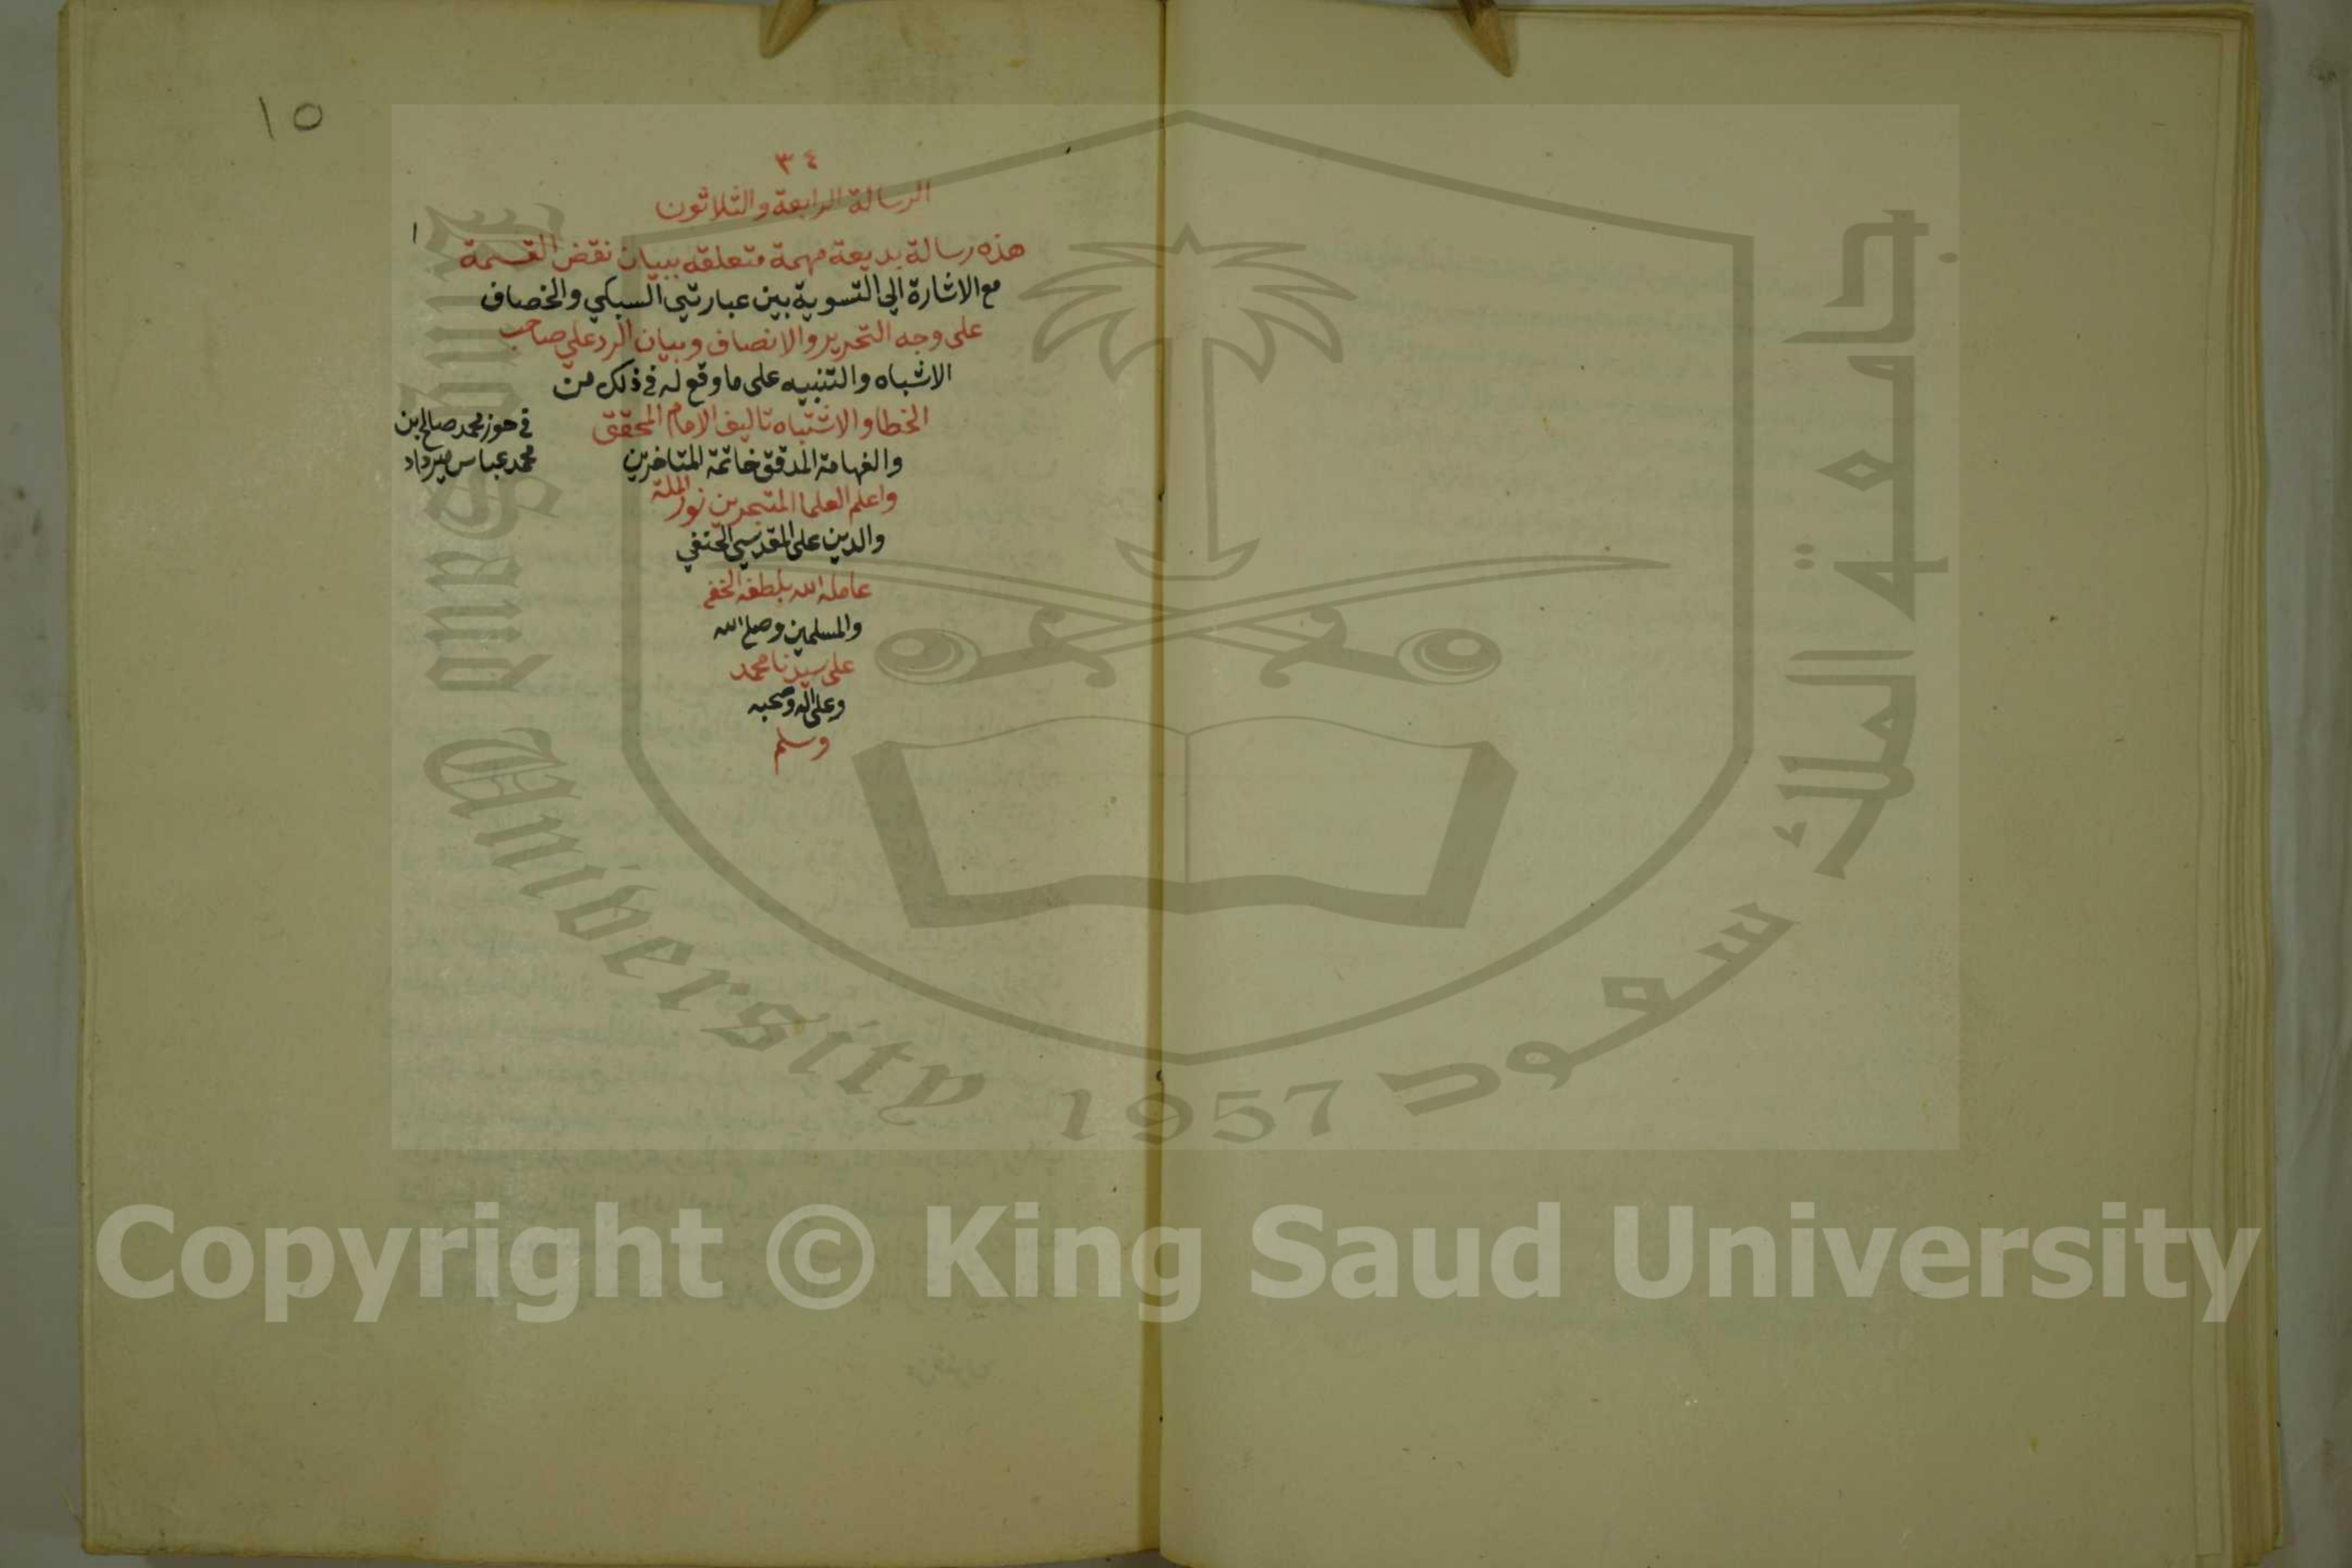 ١٥
٣٤
الرسالة الرابعة والثلاثون
١
هذه رسالة بديعة مهمة متعلقه ببيان نقض القسمة
مع الاشارة الي التسوية بين عبارتي السبكي والخصاف
على وجه التحرير والانصاف وبيان الرد علي صاحب
الاشباه والتنبيه على ما وقع له في ذلك من
الخطا والاشتباه تاليف الامام المحقق
والفهامة المدقق خاتمة المتاخرين
واعلم العلما المتبحرين نور الملة
والدين على المقدسي الحنفي
عامله الله بلطفه الخفي
والمسلمين وصلى الله
على سيدنا محمد
وعلى اله وصحبه
وسلم
في حوز محمد صالح بن
محمد عباس ميرداد
جامعة الملك سعود
King Saud University 1957
Copyright © King Saud University